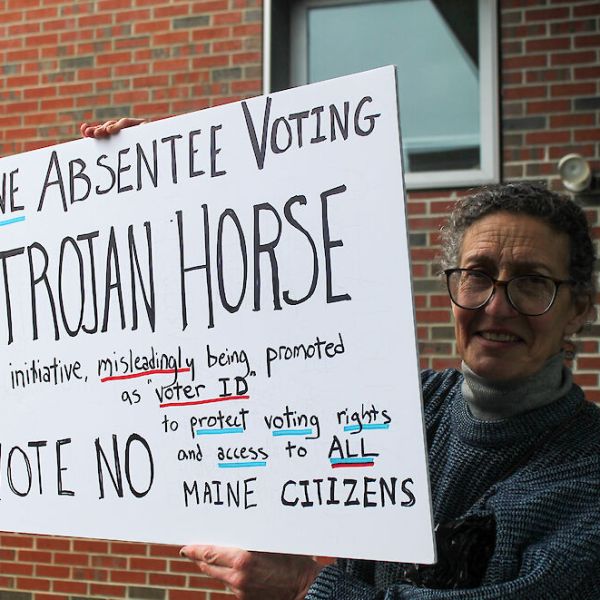 ABSENTEE VOTING
TROJAN HORSE
initiative, misleadingly being promoted
as "voter ID"
to protect voting rights
and access to ALL
VOTE NO MAINE CITIZENS